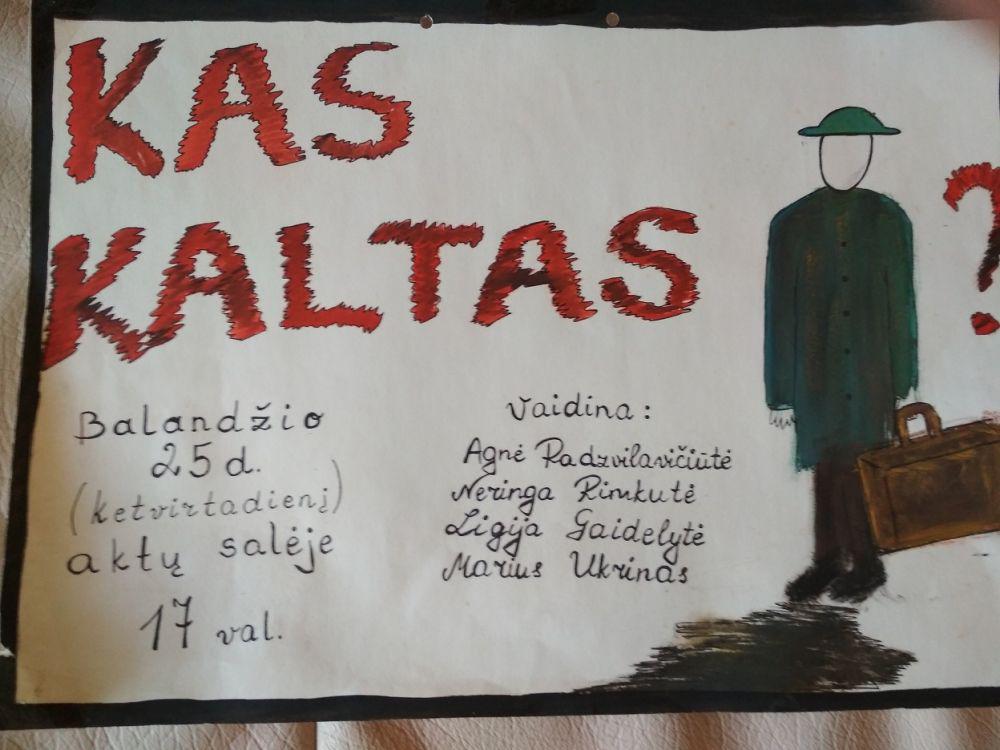 KAS
KALTAS ?
Balandžio
25 d.
(ketvirtadienį)
aktų salėje
17 val.
Vaidina:
Agnė Radzvilavičiūtė
Neringa Rimkutė
Ligija Gaidelytė
Marius Ukrinas